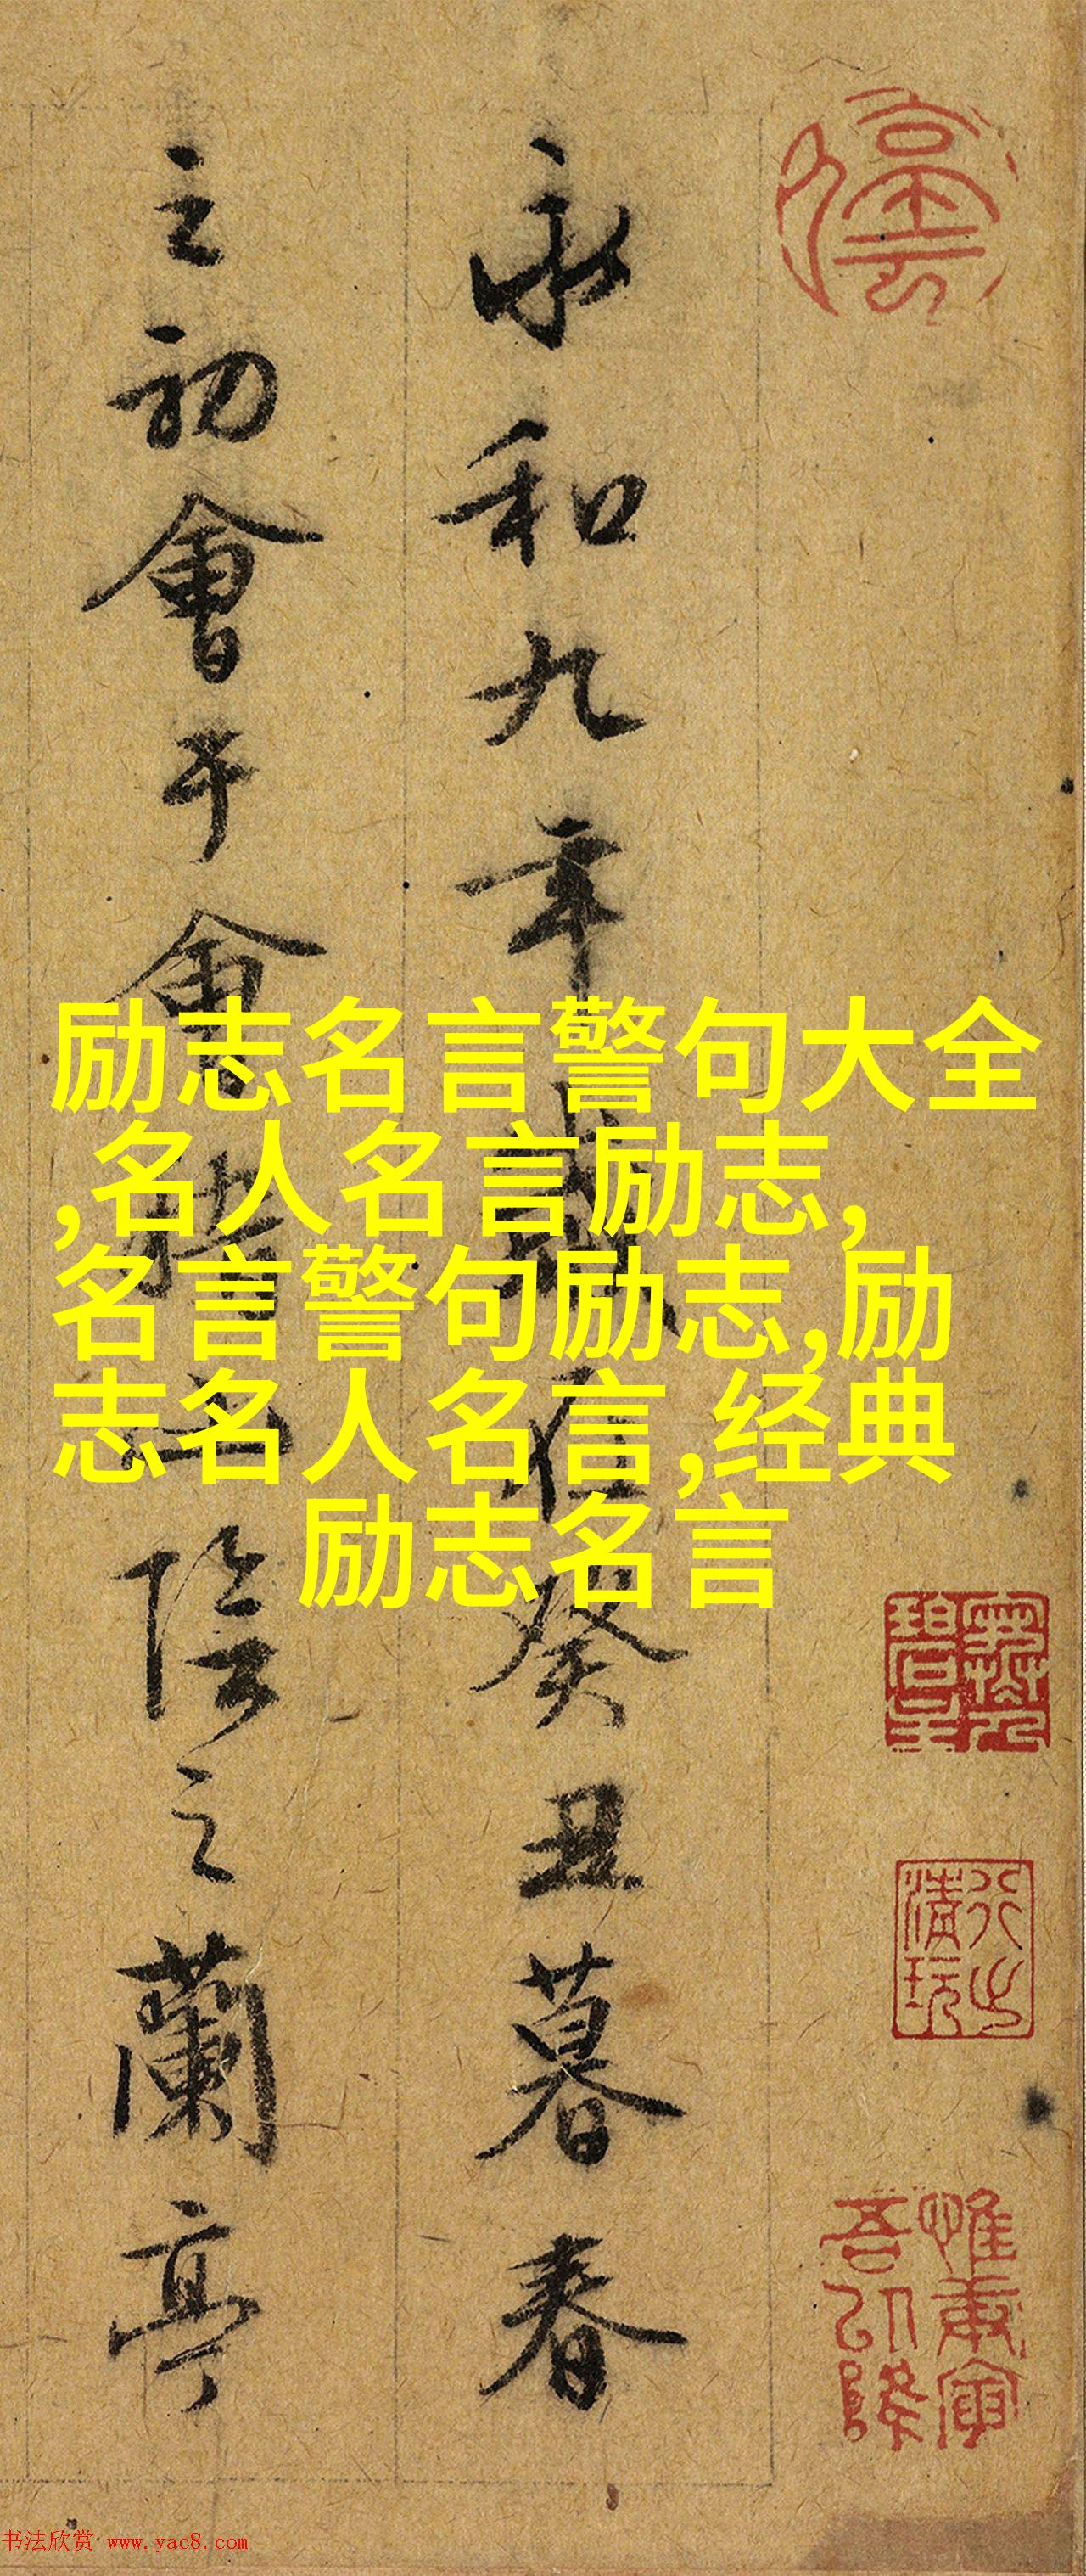 永和九年歲在癸丑暮春
之初會于會稽山陰之蘭亭
励志名言警句大全
,名人名言励志,
名言警句励志,励
志名人名言,经典
励志名言
惟庚寅
吾以降
书法欣赏 www.yac8.com